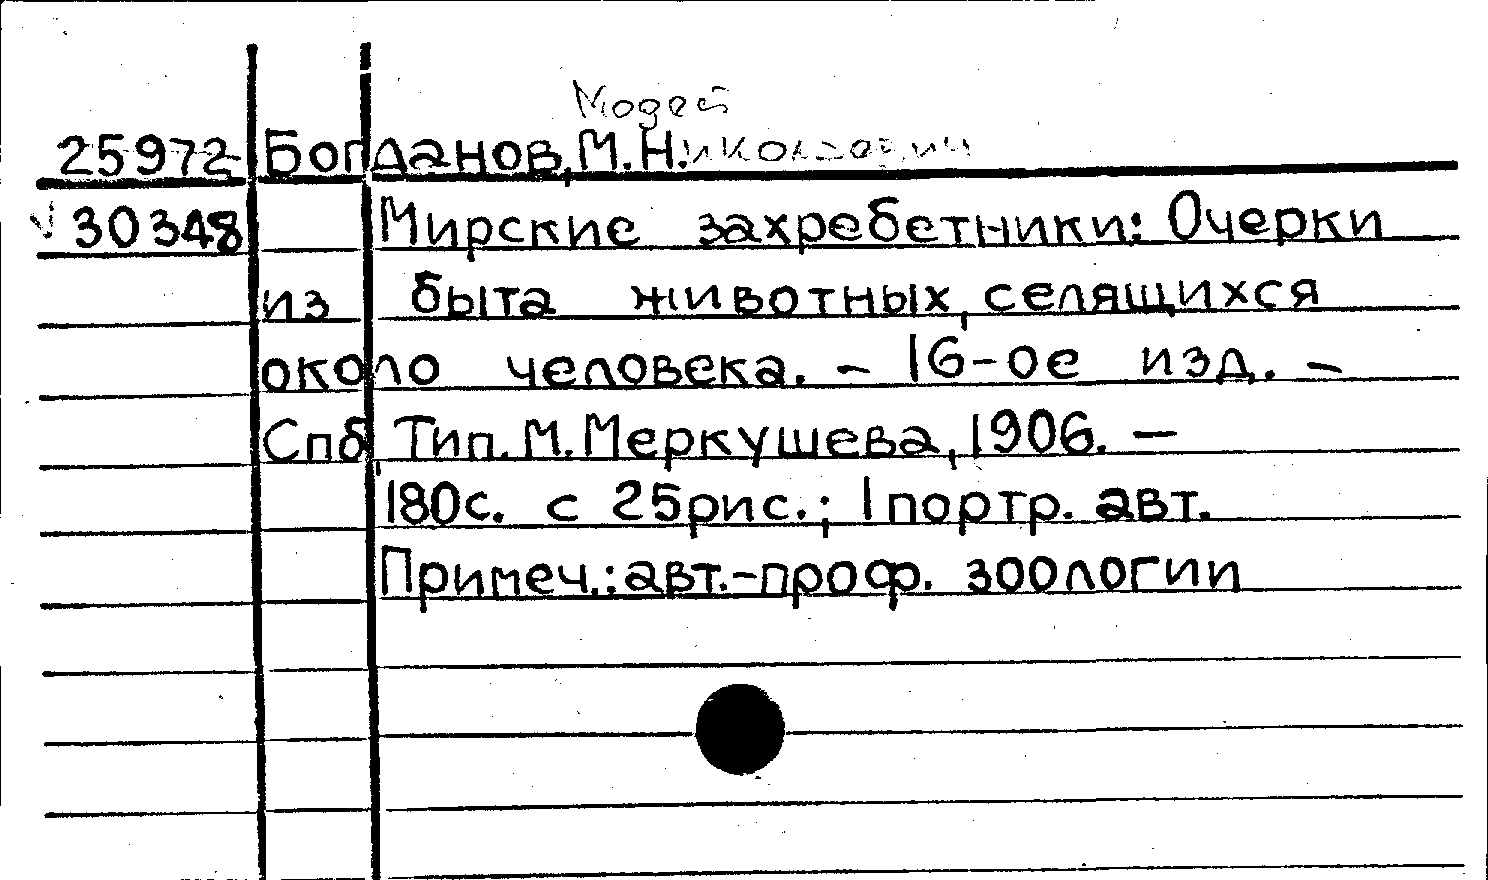 Модест
25972 Богданов, М. Николаевич
30348 Мирские захребетники: Очерки
из быта животных, селящихся
около человека. – 16-ое изд. –
Спб, Тип. М. Меркушева, 1906. –
180с. с 25рис.; 1 портр. авт.
Примеч.: авт.-проф. зоологии